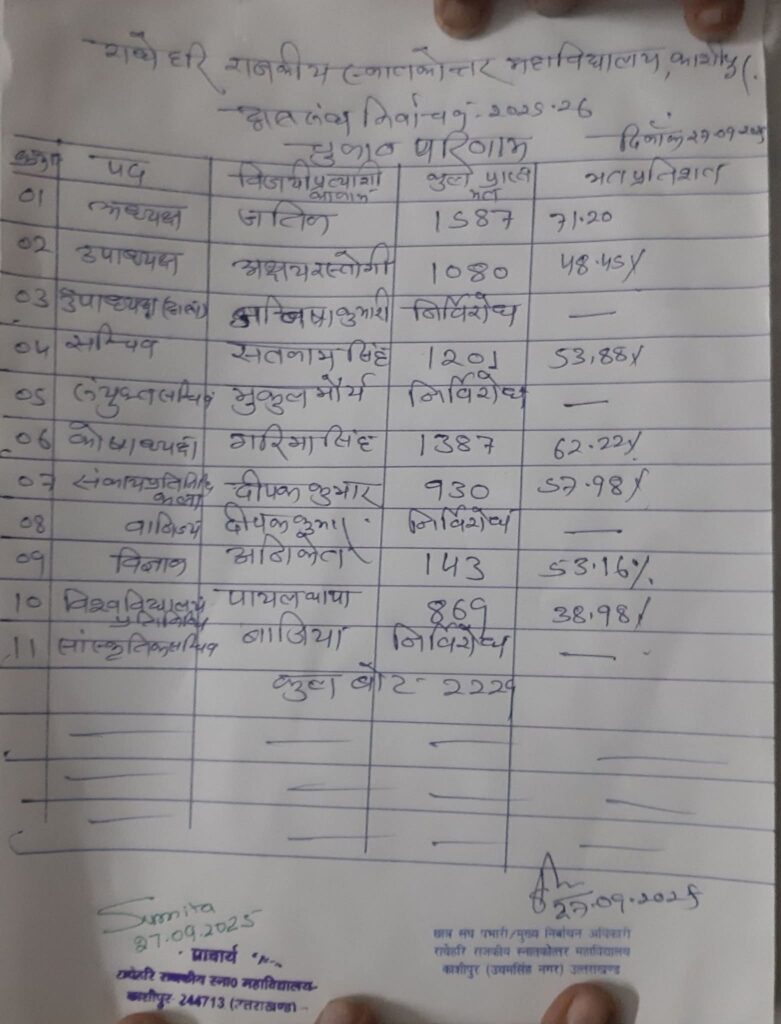 राधेहरि राजकीय स्नातकोत्तर महाविद्यालय, काशीपुर
छात्र संघ निर्वाचन - 2025-26
चुनाव परिणाम दिनाँक 27.09.2025
पद विजयी प्रत्याशी का नाम कुल प्राप्त मत मत प्रतिशत
01 अध्यक्ष जतिन 1587 71.20
02 उपाध्यक्ष अक्षय रस्तोगी 1080 48.45%
03 उपाध्यक्ष (छात्रा) कुमारी निर्विरोध —
04 सचिव सतनाम सिंह 1201 53.88%
05 संयुक्त सचिव मुकुल मौर्य निर्विरोध —
06 कोषाध्यक्ष गरिमा सिंह 1387 62.22%
07 संकाय प्रतिनिधि कला दीपक कुमार 930 57.98%
08 वाणिज्य दीपक कुमार निर्विरोध —
09 विज्ञान अनिकेत 143 53.16%
10 विश्वविद्यालय प्रतिनिधि पायल 869 38.98%
11 सांस्कृतिक सचिव नाजिया निर्विरोध —
कुल वोट - 2229
Sumita
27.09.2025
प्राचार्य
राधेहरि राजकीय स्ना0 महाविद्यालय
काशीपुर 244713 (उत्तराखण्ड)
27.09.2025
छात्र संघ प्रभारी/मुख्य निर्वाचन अधिकारी
राधेहरि राजकीय स्नातकोत्तर महाविद्यालय
काशीपुर (उधमसिंह नगर) उत्तराखण्ड